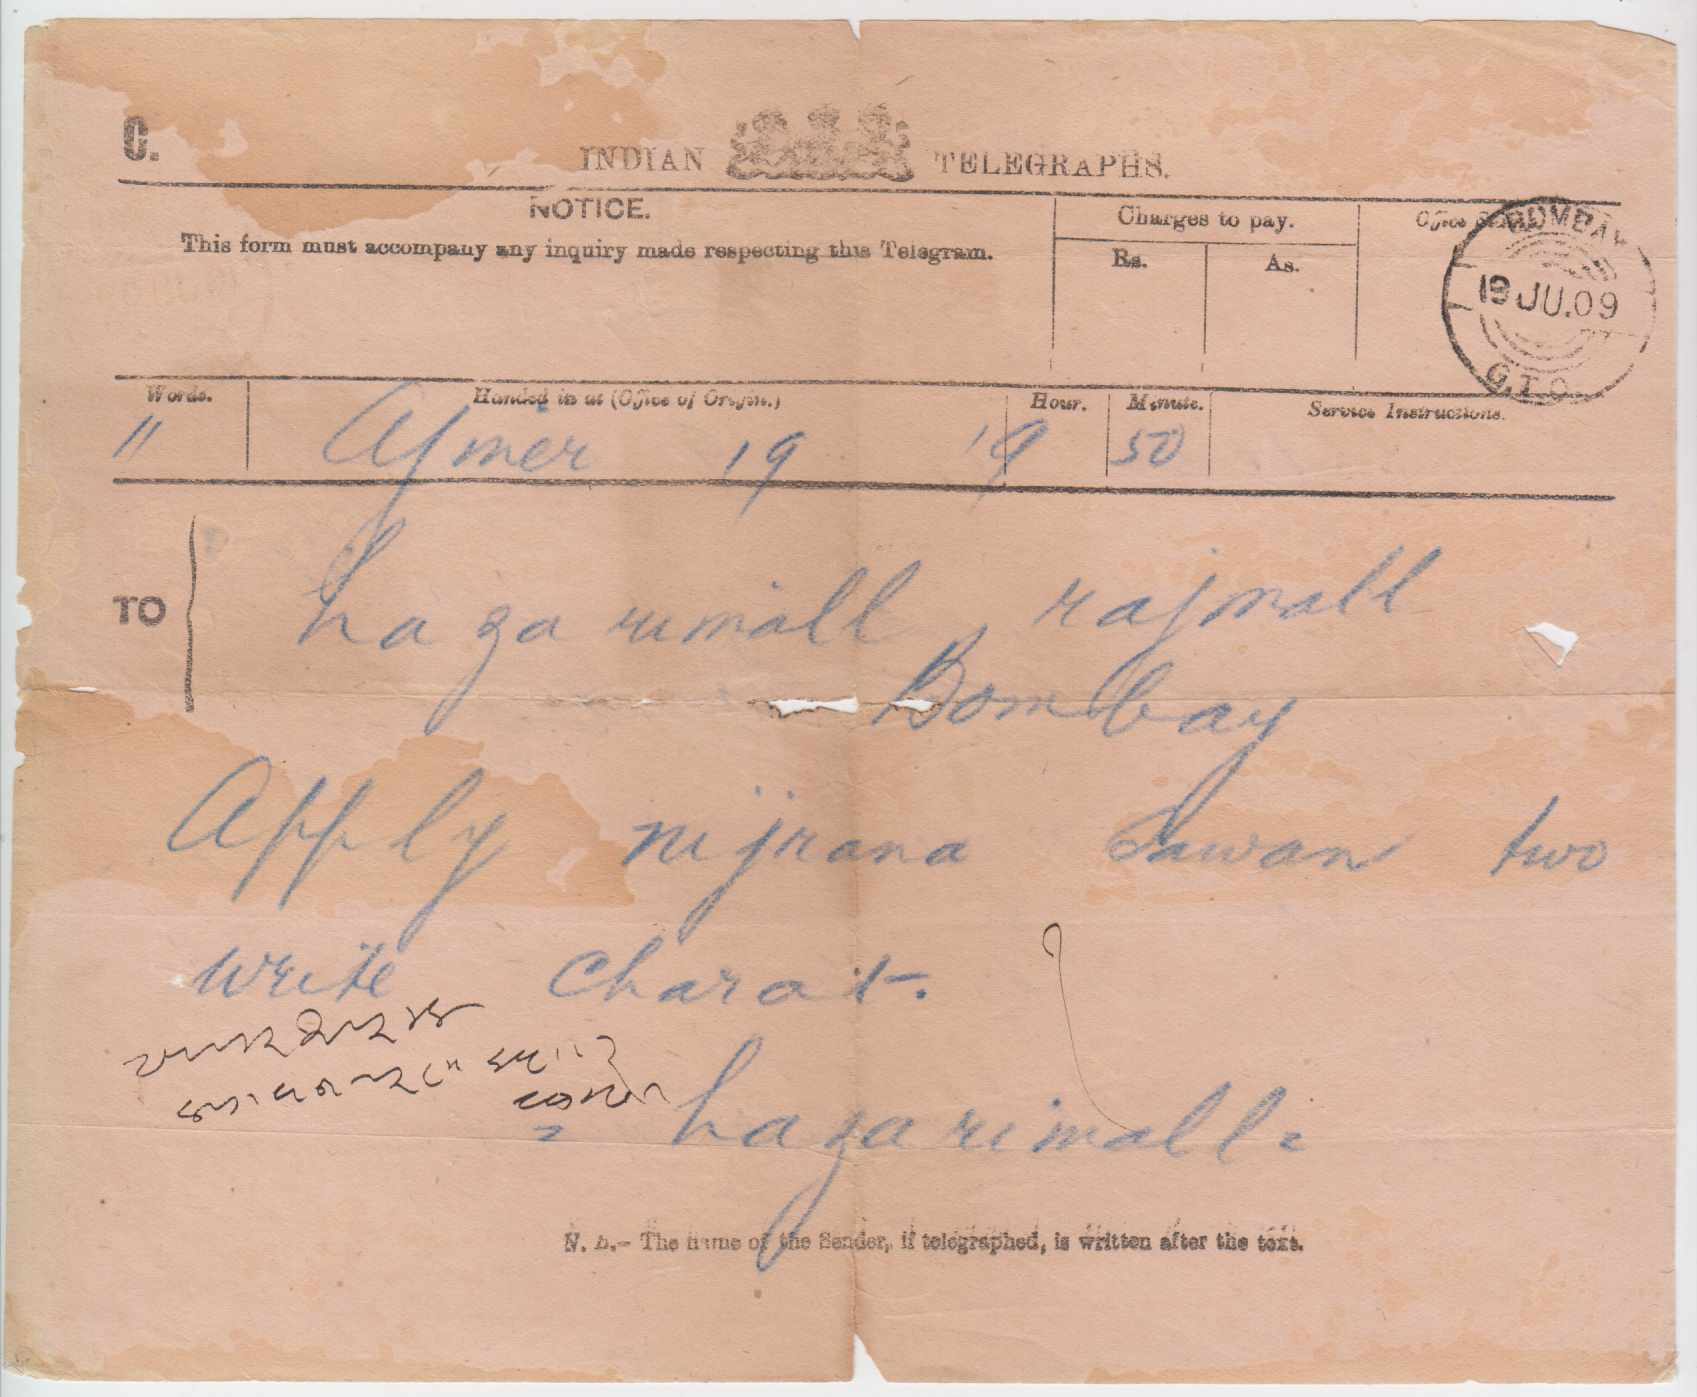 C.
INDIAN TELEGRAPHS.
NOTICE.
This form must accompany any inquiry made respecting this Telegram.
Charges to pay.
Rs. As.
Office
BOMBAY
19 JU.09
G.T.O.
Words. Handed in at (Office of Origin.) Hour. Minute. Service Instructions.
11 Ajmer 19 19 50
TO
hazarimall rajmall
Bombay
Apply nijrana Sawan two
write Charat.
= hazarimall =
N. B.- The name of the Sender, if telegraphed, is written after the text.